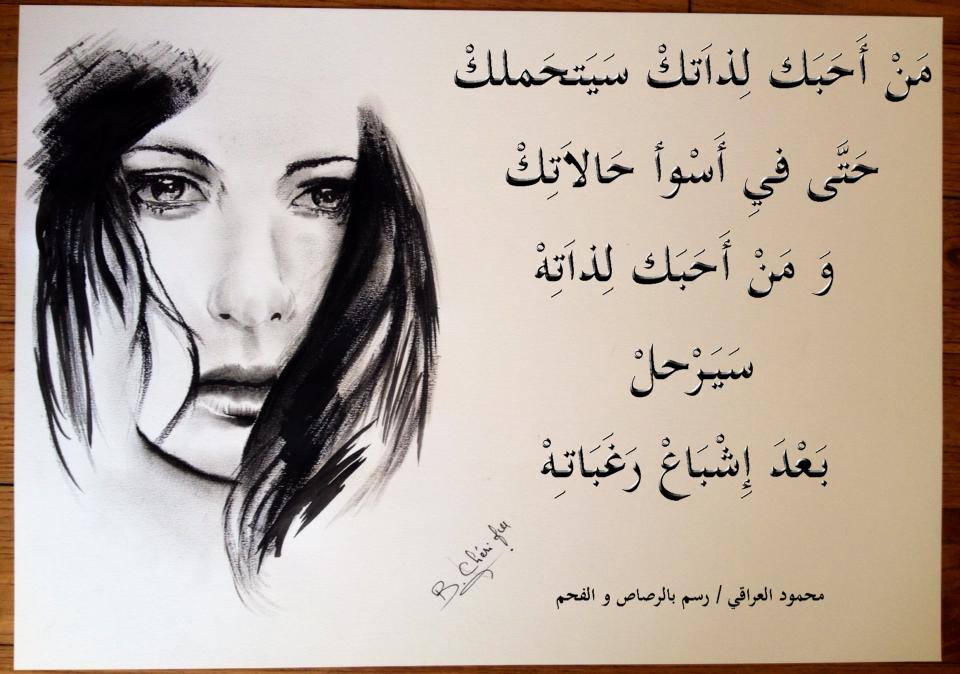 مَنْ أَحَبَك لِذاَتكْ سَيَتحَملكْ
حَتَّى في أَسْوأ حَالاَتِكْ
وَ مَنْ أَحَبَك لِذاَتِهْ
سَيَرْحلْ
بَعْدَ إِشْبَاغْ رَغَبَاتهِْ
محمود العراقي / رسم بالرصاص و الفحم